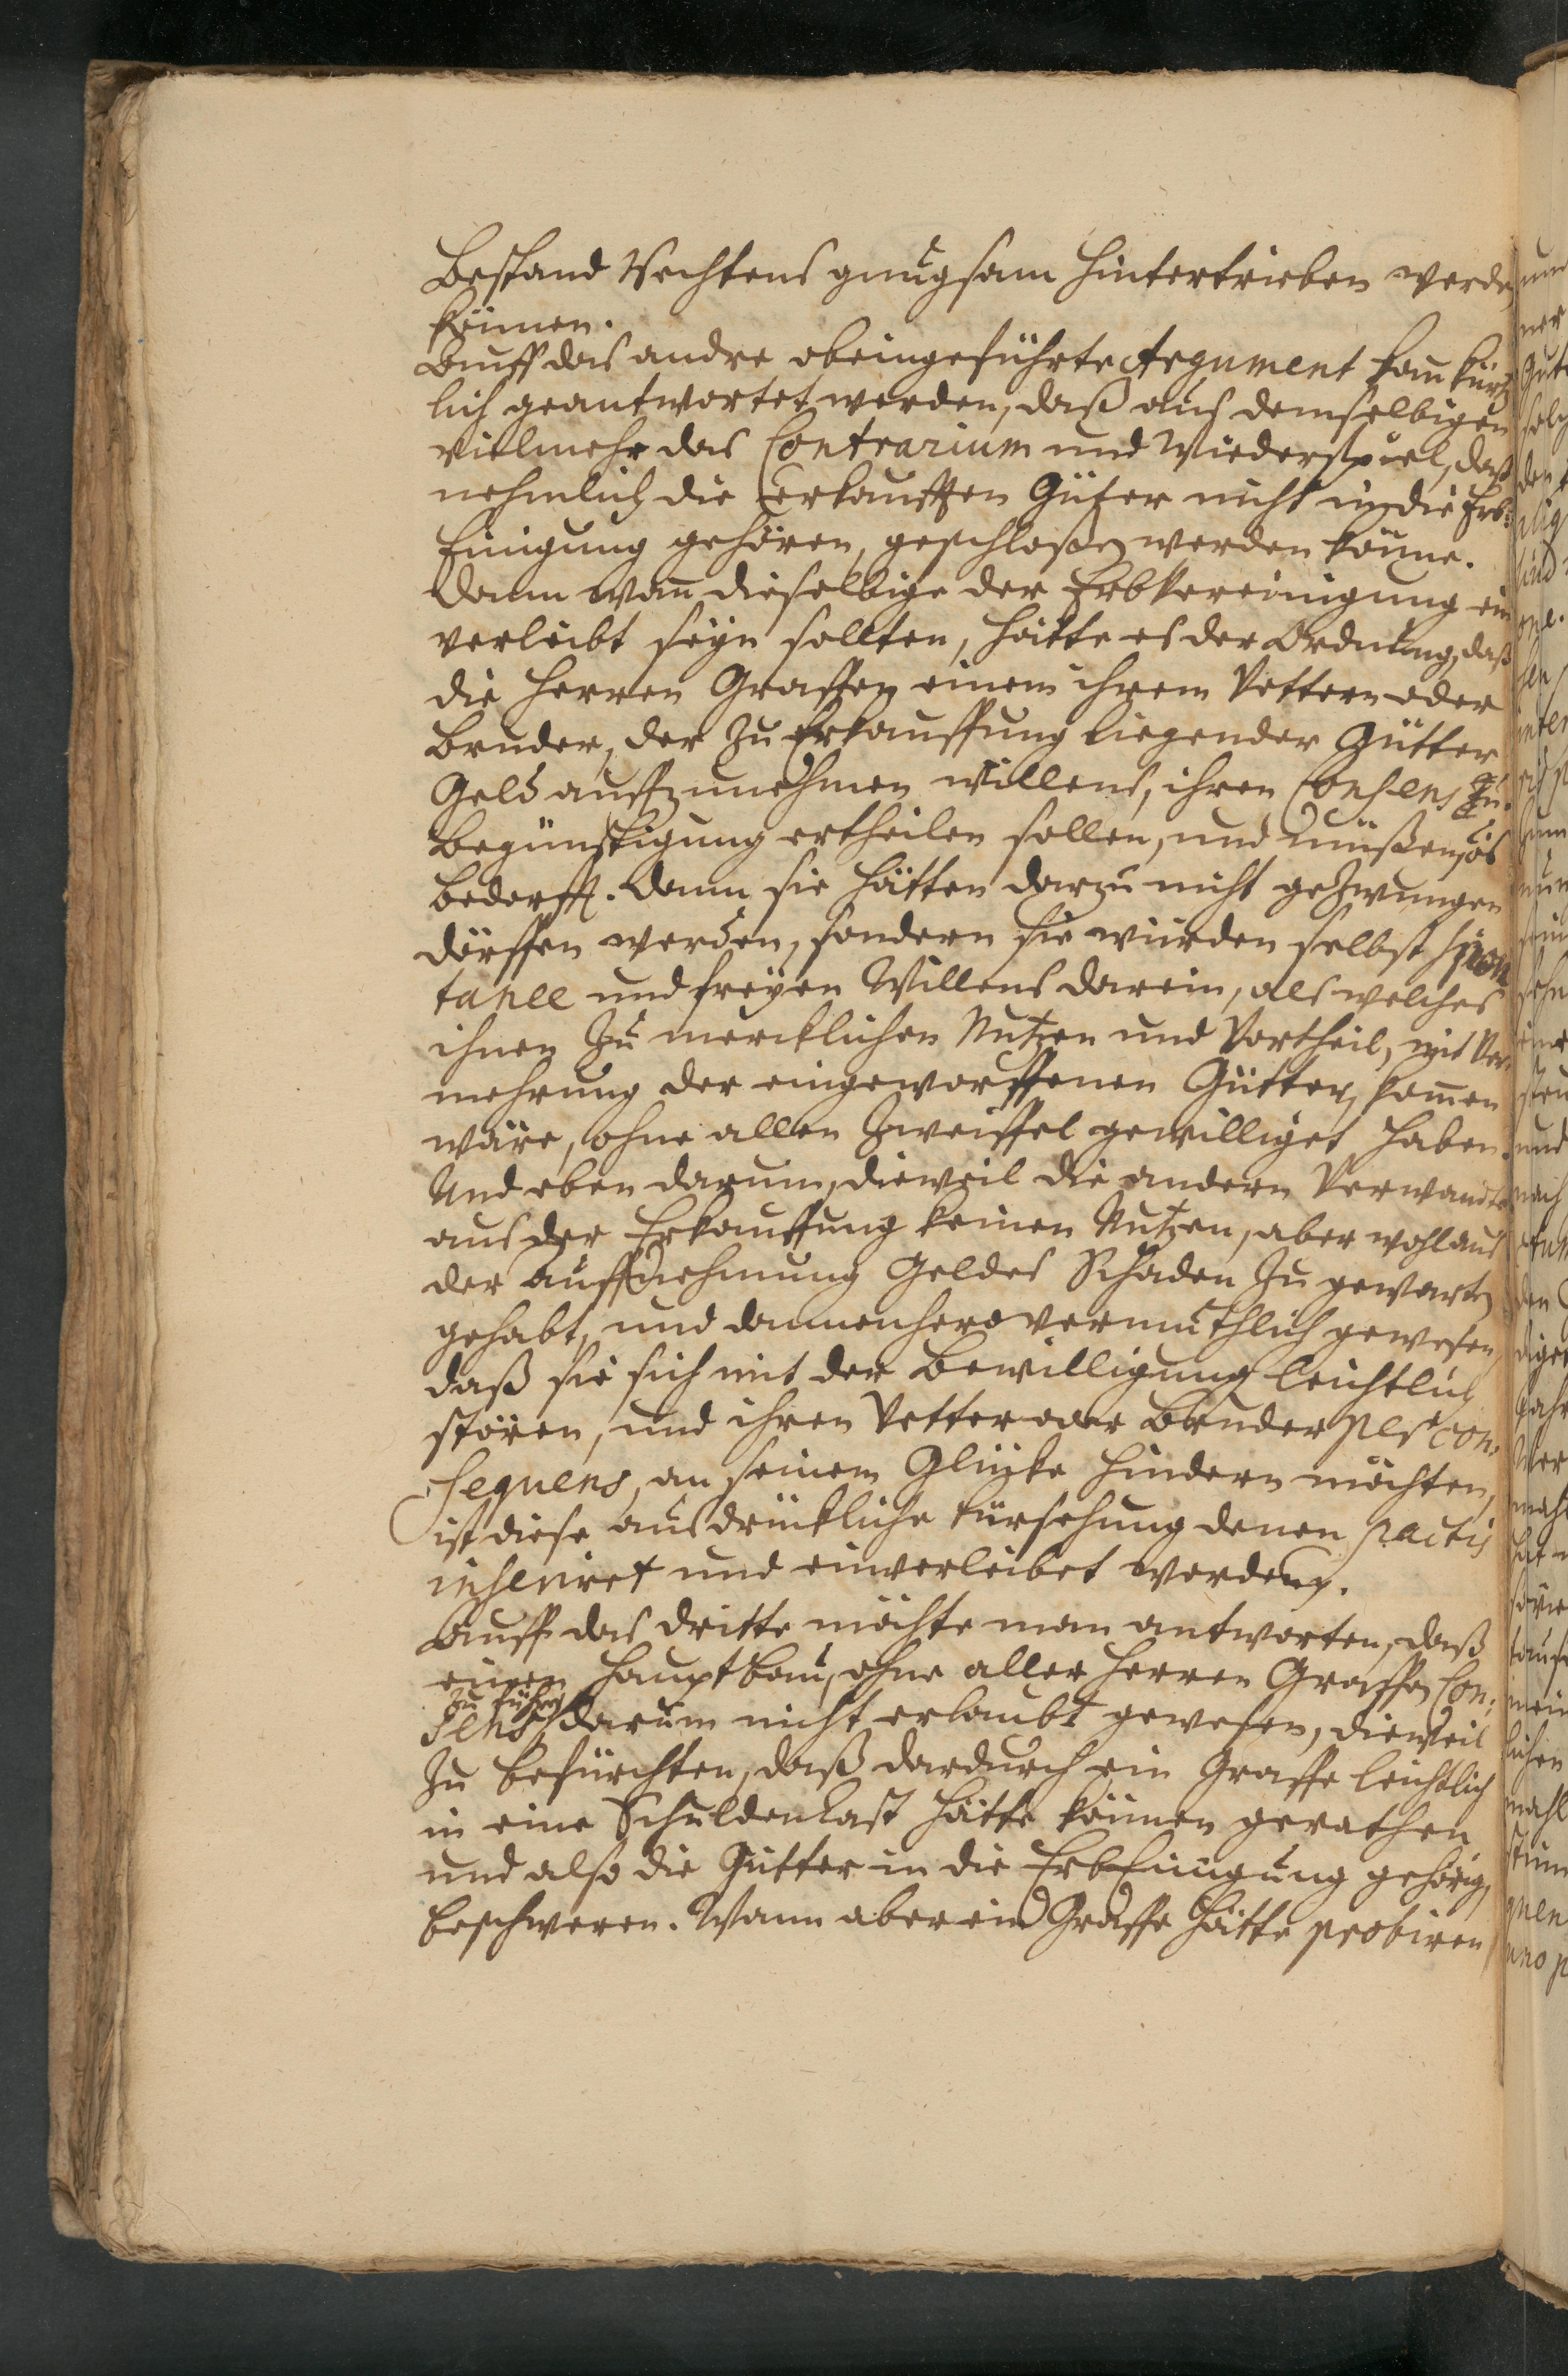 Bestand Rechtens gnugsam hintertrieben werden
können.
Auff das andre obeingeführte Argument kan kürtz
lich geantwortet werden, daß aus demselbigen
vielmehr das Contrarium und Wiederspiel, daß
nehmlich die erkaufften Güter nicht in die Erb=
Einigung gehören, geschloßen werden könne.
Dann wan dieselbige der Erbvereinigung ein
verleibt seyn sollten, hätte es der Ordnung, daß
die Herren Graffen einem ihrem Vettern oder
Bruder, der zu Erkauffung liegender Gütter
Geld auffzunehmen willens, ihren Consens zu
Begünstigung ertheilen sollen, und müßen,
bedorfft. Dann sie hätten darzu nicht gezwungen
dörffen werden, sondern sie würden selbst spon
tanee und freyen Willens darein, als welches
ihnen zu mercklichen Nutzen und Vortheil, mit Ver=
mehrung der eingeworffenen Gütter, komen
wäre, ohne allen Zweiffel gewilliget haben.
Und eben darum, dieweil die andern Verwandten
aus der Erkauffung keinen Nutzen, aber wohl aus
der Auffnehmung Geldes Schaden zu gewarten
gehabt, und dannenhero vermuthlich gewesen,
daß sie sich mit der Bewilligung leichtlich
stören, und ihren Vetter oder Bruder per con=
sequens, an seinem Glücke hindern möchten,
ist diese ausdrückliche Fürsehung denen pactis
inseriret und einverleibet worden.
Auff das dritte möchte man antworten, daß
einen Hauptbau, ohne aller Herren Graffen Con=
sens zu führen darum nicht erlaubt gewesen, dieweil
zu befürchten, daß dardurch ein Graffe leichtlich
in eine Schuldenlast hätte können gerathen
und also die Gütter in die ErbEinigung gehörig,
beschweren. Wann aber ein Graffe hätte probiren